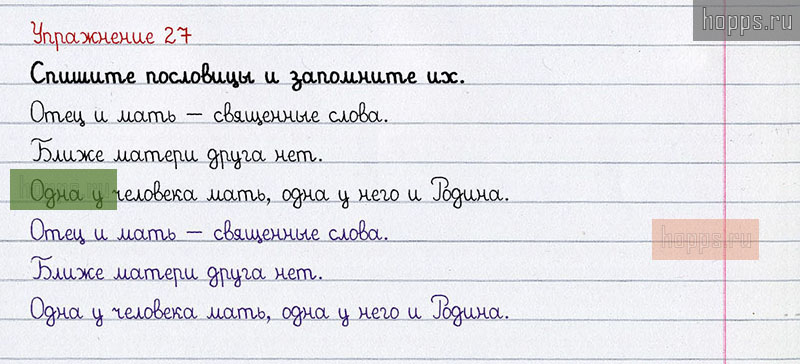 hopps.ru
Упражнение 27
Спишите пословицы и запомните их.
Отец и мать — священные слова.
Ближе матери друга нет.
Одна у человека мать, одна у него и Родина.
Отец и мать — священные слова.
hopps.ru
Ближе матери друга нет.
Одна у человека мать, одна у него и Родина.